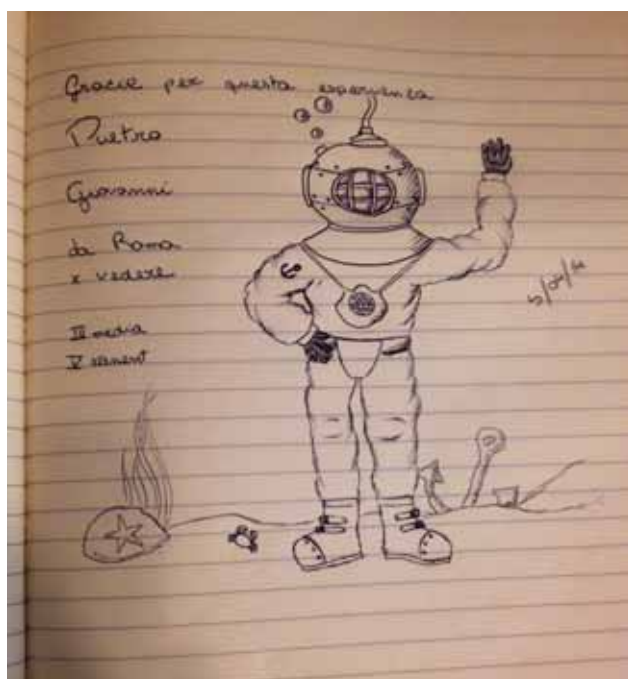 Grazie per questa esperienza
Pietro
Giovanni
da Roma
x vedere
III media
V element